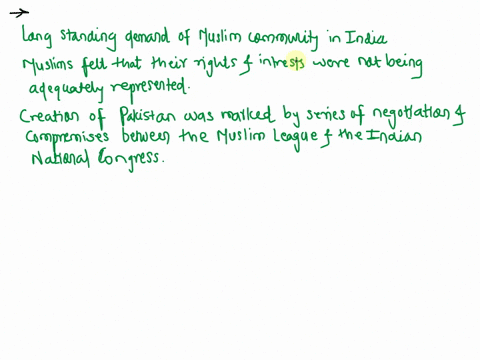 →
Long standing demand of Muslim community in India
Muslims felt that their rights & intrests were not being
adequately represented.
Creation of Pakistan was marked by series of negotiation &
compromises between the Muslim League & the Indian
National Congress.